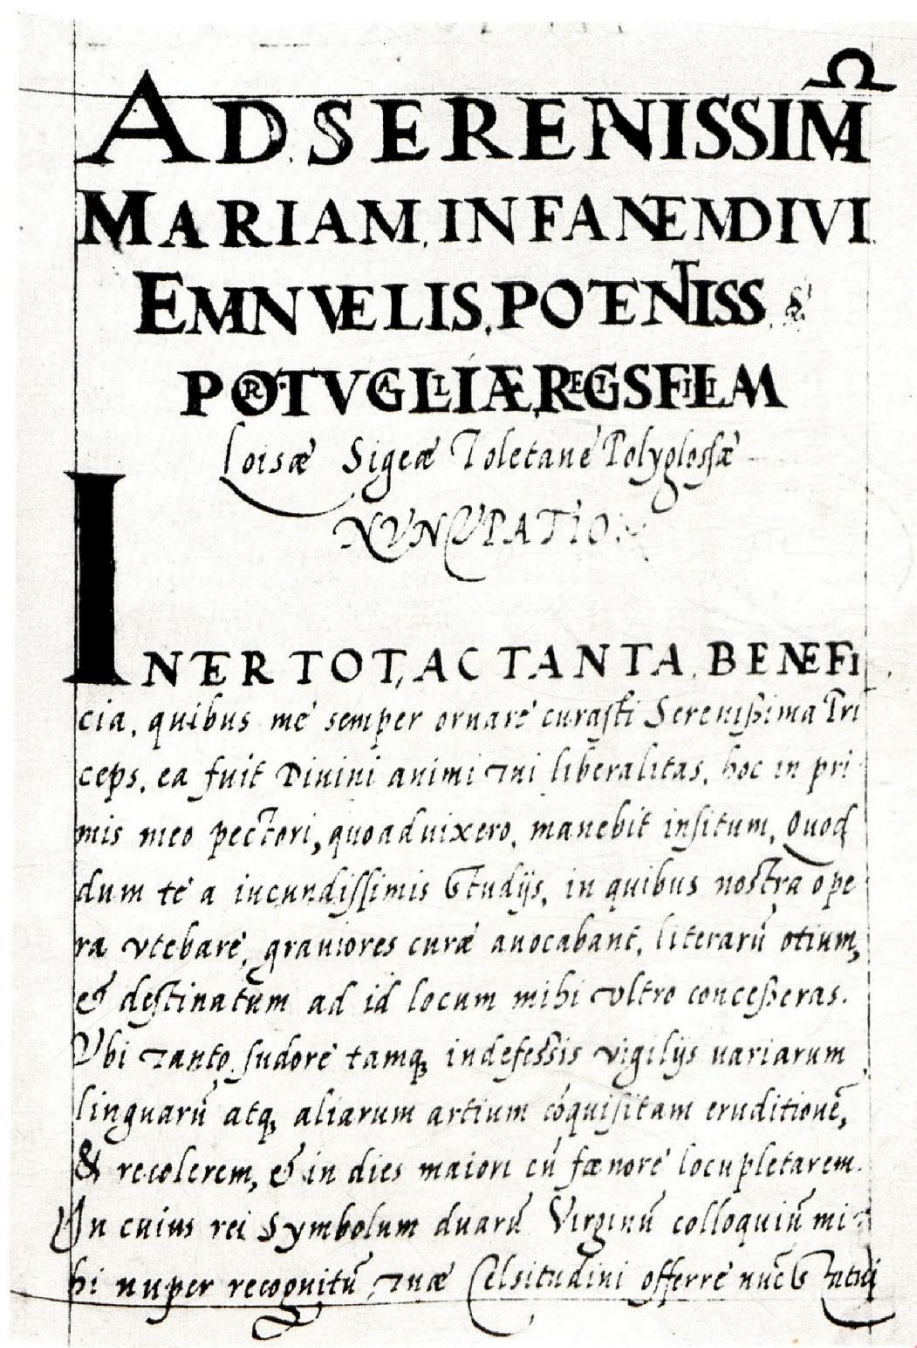 AD SERENISSIM̃
MARIAM, INFANTEM DIVI
EMANVELIS, POTENTISS. &
PORTVGALLIÆ, REGIS FILIAM
Loisæ Sigeæ Toletane Polyglossæ
NVNCVPATIO.
INTER TOT, AC TANTA, BENEFI
cia, quibus me semper ornare curasti Serenissima Pri
ceps, ea fuit Divini animi tui liberalitas, hoc in pri
mis meo pectori, quoad vixero, manebit insitum, Quod
dum te a iucundissimis Studijs, in quibus nostra ope
ra vtebare, graviores curæ avocabant, literarũ otium,
& destinatum ad id locum mihi vltro concesseras.
Vbi tanto sudore tamq, indefessis vigilijs variarum
linguarũ atq, aliarum artium cõquisitam eruditionẽ,
& recolerem, & in dies maiori cũ fænore locupletarem.
In cuius rei Symbolum duarũ Virginũ colloquiũ mi
hi nuper recognitũ tuæ Celsitudini offerre nũc Statui